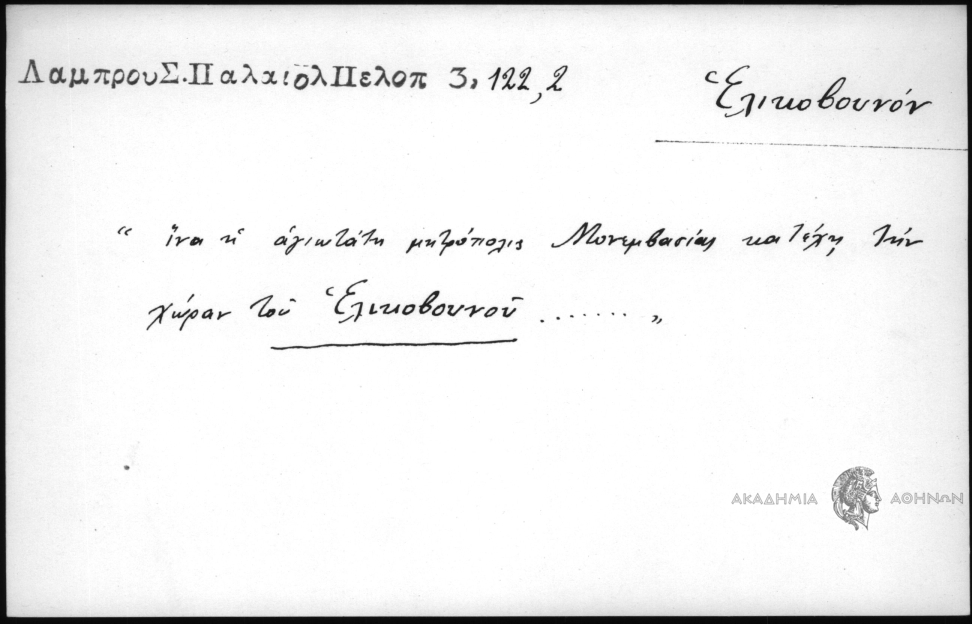 Λαμπρου Σ. Παλαιολ Πελοπ 3, 122,2
Ἑλικοβουνόν
“ ἵνα ἡ ἁγιωτάτη μητρόπολις Μονεμβασίας κατέχῃ τὴν
χώραν τοῦ Ἑλικοβουνοῦ ........ „
ΑΚΑΔΗΜΙΑ ΑΘΗΝΩΝ